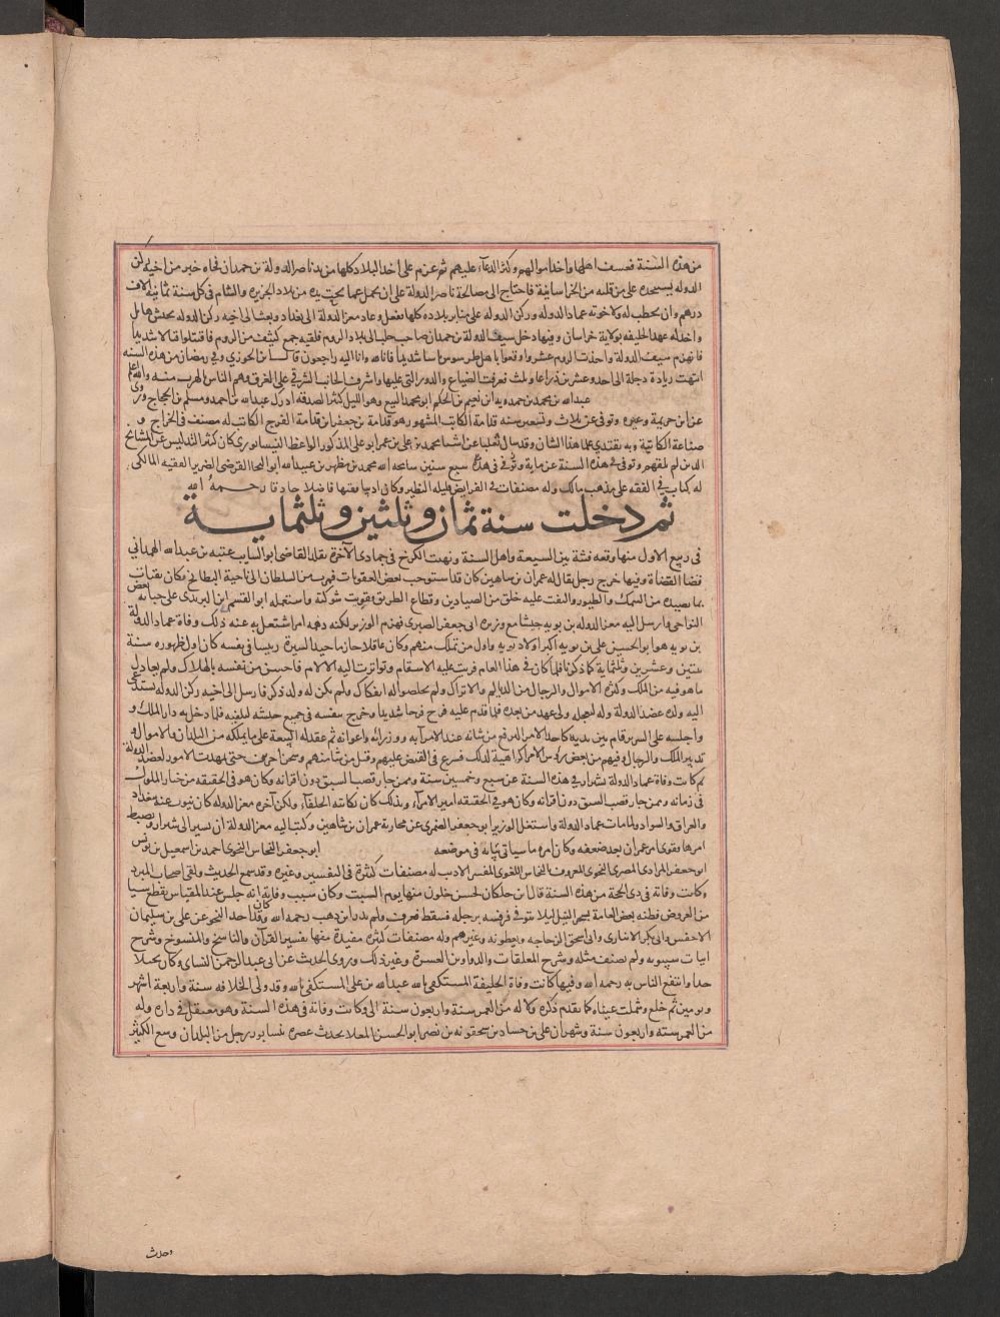 من هذه السنة فعسف اهلها واخذ اموالهم وكثر الدعاء عليهم ثم عزم على اخذ البلاد كلها من يد ناصر الدولة بن حمدان فجاه خبر من اخيه ركن
الدوله يستنجده على من قبله من الخراسانية فاحتاج الى مصالحة ناصر الدولة على ان يحمل عما تحت يده من بلاد الجزيره والشام فى كل سنة ثمانية الاف
درهم وان يخطب له ولاخوته عماد الدوله وركن الدوله على منابر بلاده كلها ففعل وعاد معز الدولة الى بغداد وبعث الى اخيه ركن الدوله بجيش هايل
واخذ له عهد الخليفه بولاية خراسان وفيها دخل سيف الدولة بن حمدان صاحب حلب الى بلاد الروم فلقيه جمع كثيف من الروم فاقتتلوا قتالا شديدا
فانهزم سيف الدولة واخذت الروم ما معه واوقعوا باهل طرسوس باسا شديدا فانا لله وانا اليه راجعون قال ابن الجوزي وفي رمضان من هذه السنه
انتهت زيادة دجلة الى احد وعشرين ذراعا وثلث فغرقت الضياع والدور التى عليها واشرف الجانب الشرقي على الغرق وهم الناس بالهرب منه والله اعلم
عبد الله بن محمد بن حمدويه ابن نعيم بن الحكم ابو محمد البيع وهو كثير الصدقه ادرك عبد الله بن احمد ومسلم بن الحجاج وروى
عن ابن خزيمة وغيره وتوفى عن ثلاث وتسعين سنه قدامة الكاتب المشهور هو قدامة بن جعفر بن قدامة ابو الفرج الكاتب له مصنف فى الخراج و
صناعة الكتابة وبه يقتدي علما هذا الشان وقد سال ثعلبا عن اشيا محمد بن علي بن عمر ابو علي المذكور الواعظ النيسابوري كان كثير التدليس عن المشائخ
الذين لم يلقهم وتوفى فى هذه السنة عن ماية وسبع سنين سامحه الله محمد بن مطهر بن عبيد الله ابو النجا الفرضي الضرير الفقيه المالكي
له كتاب فى الفقه على مذهب مالك وله مصنفات فى الفرايض قليله النظير وكان اديبا فقيها فاضلا صادقا رحمه الله
ثم دخلت سنة ثمان وثلثين وثلثماية
فى ربيع الاول منها وقعه فتنة بين الشيعة واهل السنة ونهبت الكرخ فى جمادى الآخرة تقلد القاضى ابو السايب عتبه بن عبد الله الهمداني
قضا القضاة وفيها خرج رجل يقال له عمران بن شاهين كان قد استوجب بعض العقوبات فهرب من السلطان الى ناحية البطايح فكان يقتات
بما يصيده من السمك والطيور والتفت عليه خلق من الصيادين وقطاع الطريق فقويت شوكته واستعمله ابو القسم ابن البريدى على جباية بعض
النواحي وارسل اليه معز الدوله بن بويه جيشا مع وزيره ابى جعفر الصيمري فهزم الوزير لكنه دهمه امر اشتغل به عنه ذلك وفاة عماد الدولة
بن بويه هو ابو الحسن علي بن بويه اكبر اولاد بويه واول من تملك منهم وكان عاقلا حازما حميد السيرة رييسا فى نفسه كان اول ظهوره سنة
ثنتين وعشرين وثلثماية كما ذكرنا فلما كان فى هذا العام قويت عليه الاسقام وتواترت اليه الالام فاحس من نفسه بالهلاك ولم يعادل
ما هو فيه من الملك وكثرة الاموال والرجال من الديلم والاتراك ولم يخلصوا له انفكاك ولم يكن له ولد ذكر فارسل الى اخيه ركن الدوله يستدعي
اليه ولده عضد الدولة وله ليجعله ولي عهد من بعده فلما قدم عليه فرح فرحا شديدا وخرج بنفسه فى جميع جيشه ليلقيه فلما دخل به دار الملك و
واجلسه على السرير قام بين يديه كاحد الامرا ليرفع من شانه عند الامرآ به ووزرائه واعوانه ثم عقد له البيعة على ما يملكه من البلدان والاموال و
تدبير الملك والرجال وفيهم من بعض رؤس الامرا كراهية لذلك فشرع فى القبض عليهم وقتل من شا منهم وسجن اخرين حتى تمهدت الامور لعضد الدولة
ثم كانت وفاة عماد الدولة بشيراز في هذه السنة عن سبع وخمسين سنة وممن حاز قصب السبق دون اقرانه وكان هو فى الحقيقه من خيار الملوك
فى زمانه وممن حاز قصب السبق دون اقرانه وكان هو في الحقيقه امير الامرآء وبذلك كان تكاتبه الخلفآء ولكن اخوه معز الدوله كان ينوب عنه ببغداد
والعراق والسواد ولما مات عماد الدولة واستغل الوزير ابو جعفر الصيمرى عن محاربة عمران بن شاهين وكتب اليه معز الدولة ان يسير الى شيراز ويضبط
امرها فقوى امر عمران بعد ضعفه وكان امره ما سياتى بيانه فى موضعه ابو جعفر النحاس النحوى احمد بن اسمعيل بن يونس
ابو جعفر المرادي المصري النحوي المعروف بالنحاس اللغوى المفسر الاديب له مصنفات كثيرة فى التفسير وغيره وقد سمع الحديث ولقى اصحاب المبرد
وكانت وفاته فى ذى الحجة من هذه السنة قال ابن خلكان لخمس خلون منها يوم السبت وكان سبب وفاته انه جلس عند المقياس يقطع شيا
من العروض فظنه بعض العامة يسحر النيل ليلا يتوفى فرفسه برجله فسقط فغرق ولم يدر اين ذهب رحمه الله وقد كان احد النحو عن علي بن سليمان
الاخفش وابى بكر الانبارى وابى اسحق الزجاج ونفطويه وغيرهم وله مصنفات كثيره مفيدة منها تفسير القرآن والناسخ والمنسوخ وشرح
ابيات سيبويه ولم يصنف مثله وشرح المعلقات والدواوين العشرة وغير ذلك وروى الحديث عن ابى عبد الرحمن النساى وكان بخيلا
جدا وانتفع الناس به رحمه الله وفيها كانت وفاة الخليفة المستكفى بالله عبد الله بن على المستكفى بالله وقد ولى الخلافه سنة واربعة اشهر
ويومين ثم خلع وسملت عيناه كما تقدم ذكره وكان له من العمر سنة واربعون سنة التى كانت وفاته فى هذه السنة وهو معتقل فى داره وله
من العمر سته واربعون سنة وشهران على بن حمشاد بن سحتويه بن نصر ابو الحسن المعدل محدث عصره بنيسابور رحل من البلدان وسمع الكثير
وحدث